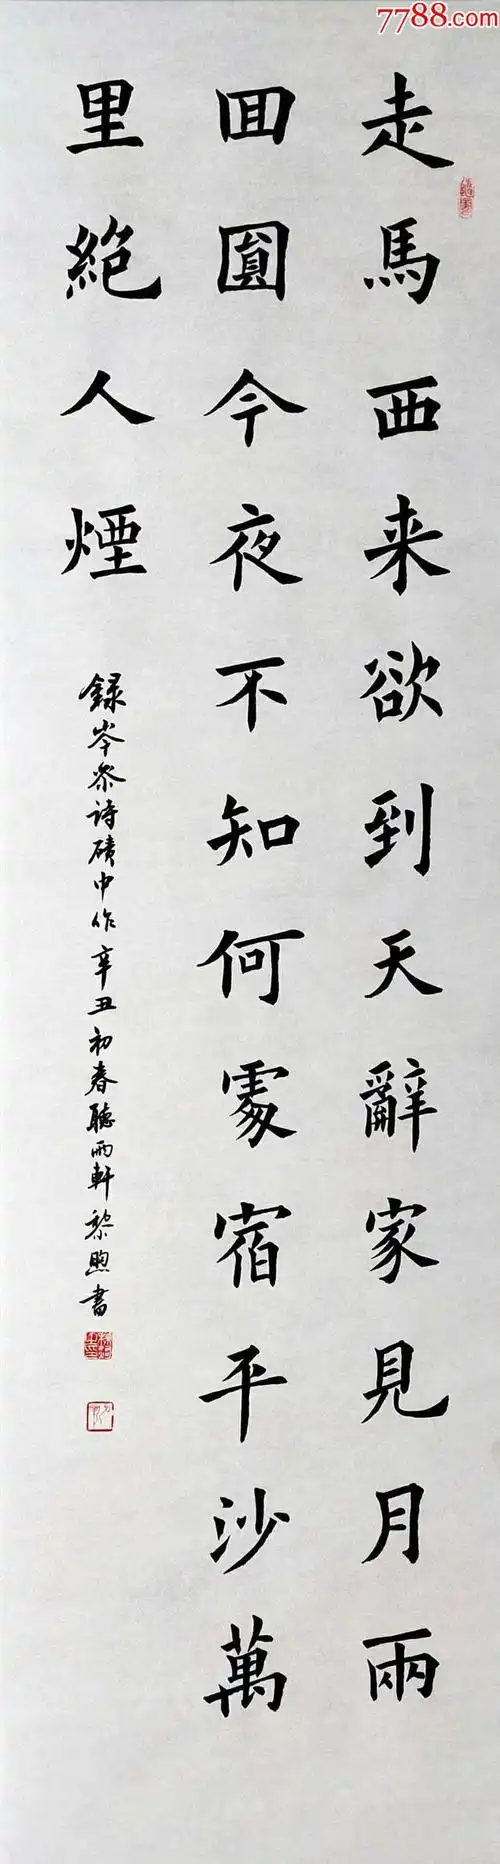 走馬西来欲到天辭家見月兩
回圓今夜不知何處宿平沙萬
里絕人煙
録岑參詩磧中作辛丑初春聽雨軒黎煦書
7788.com